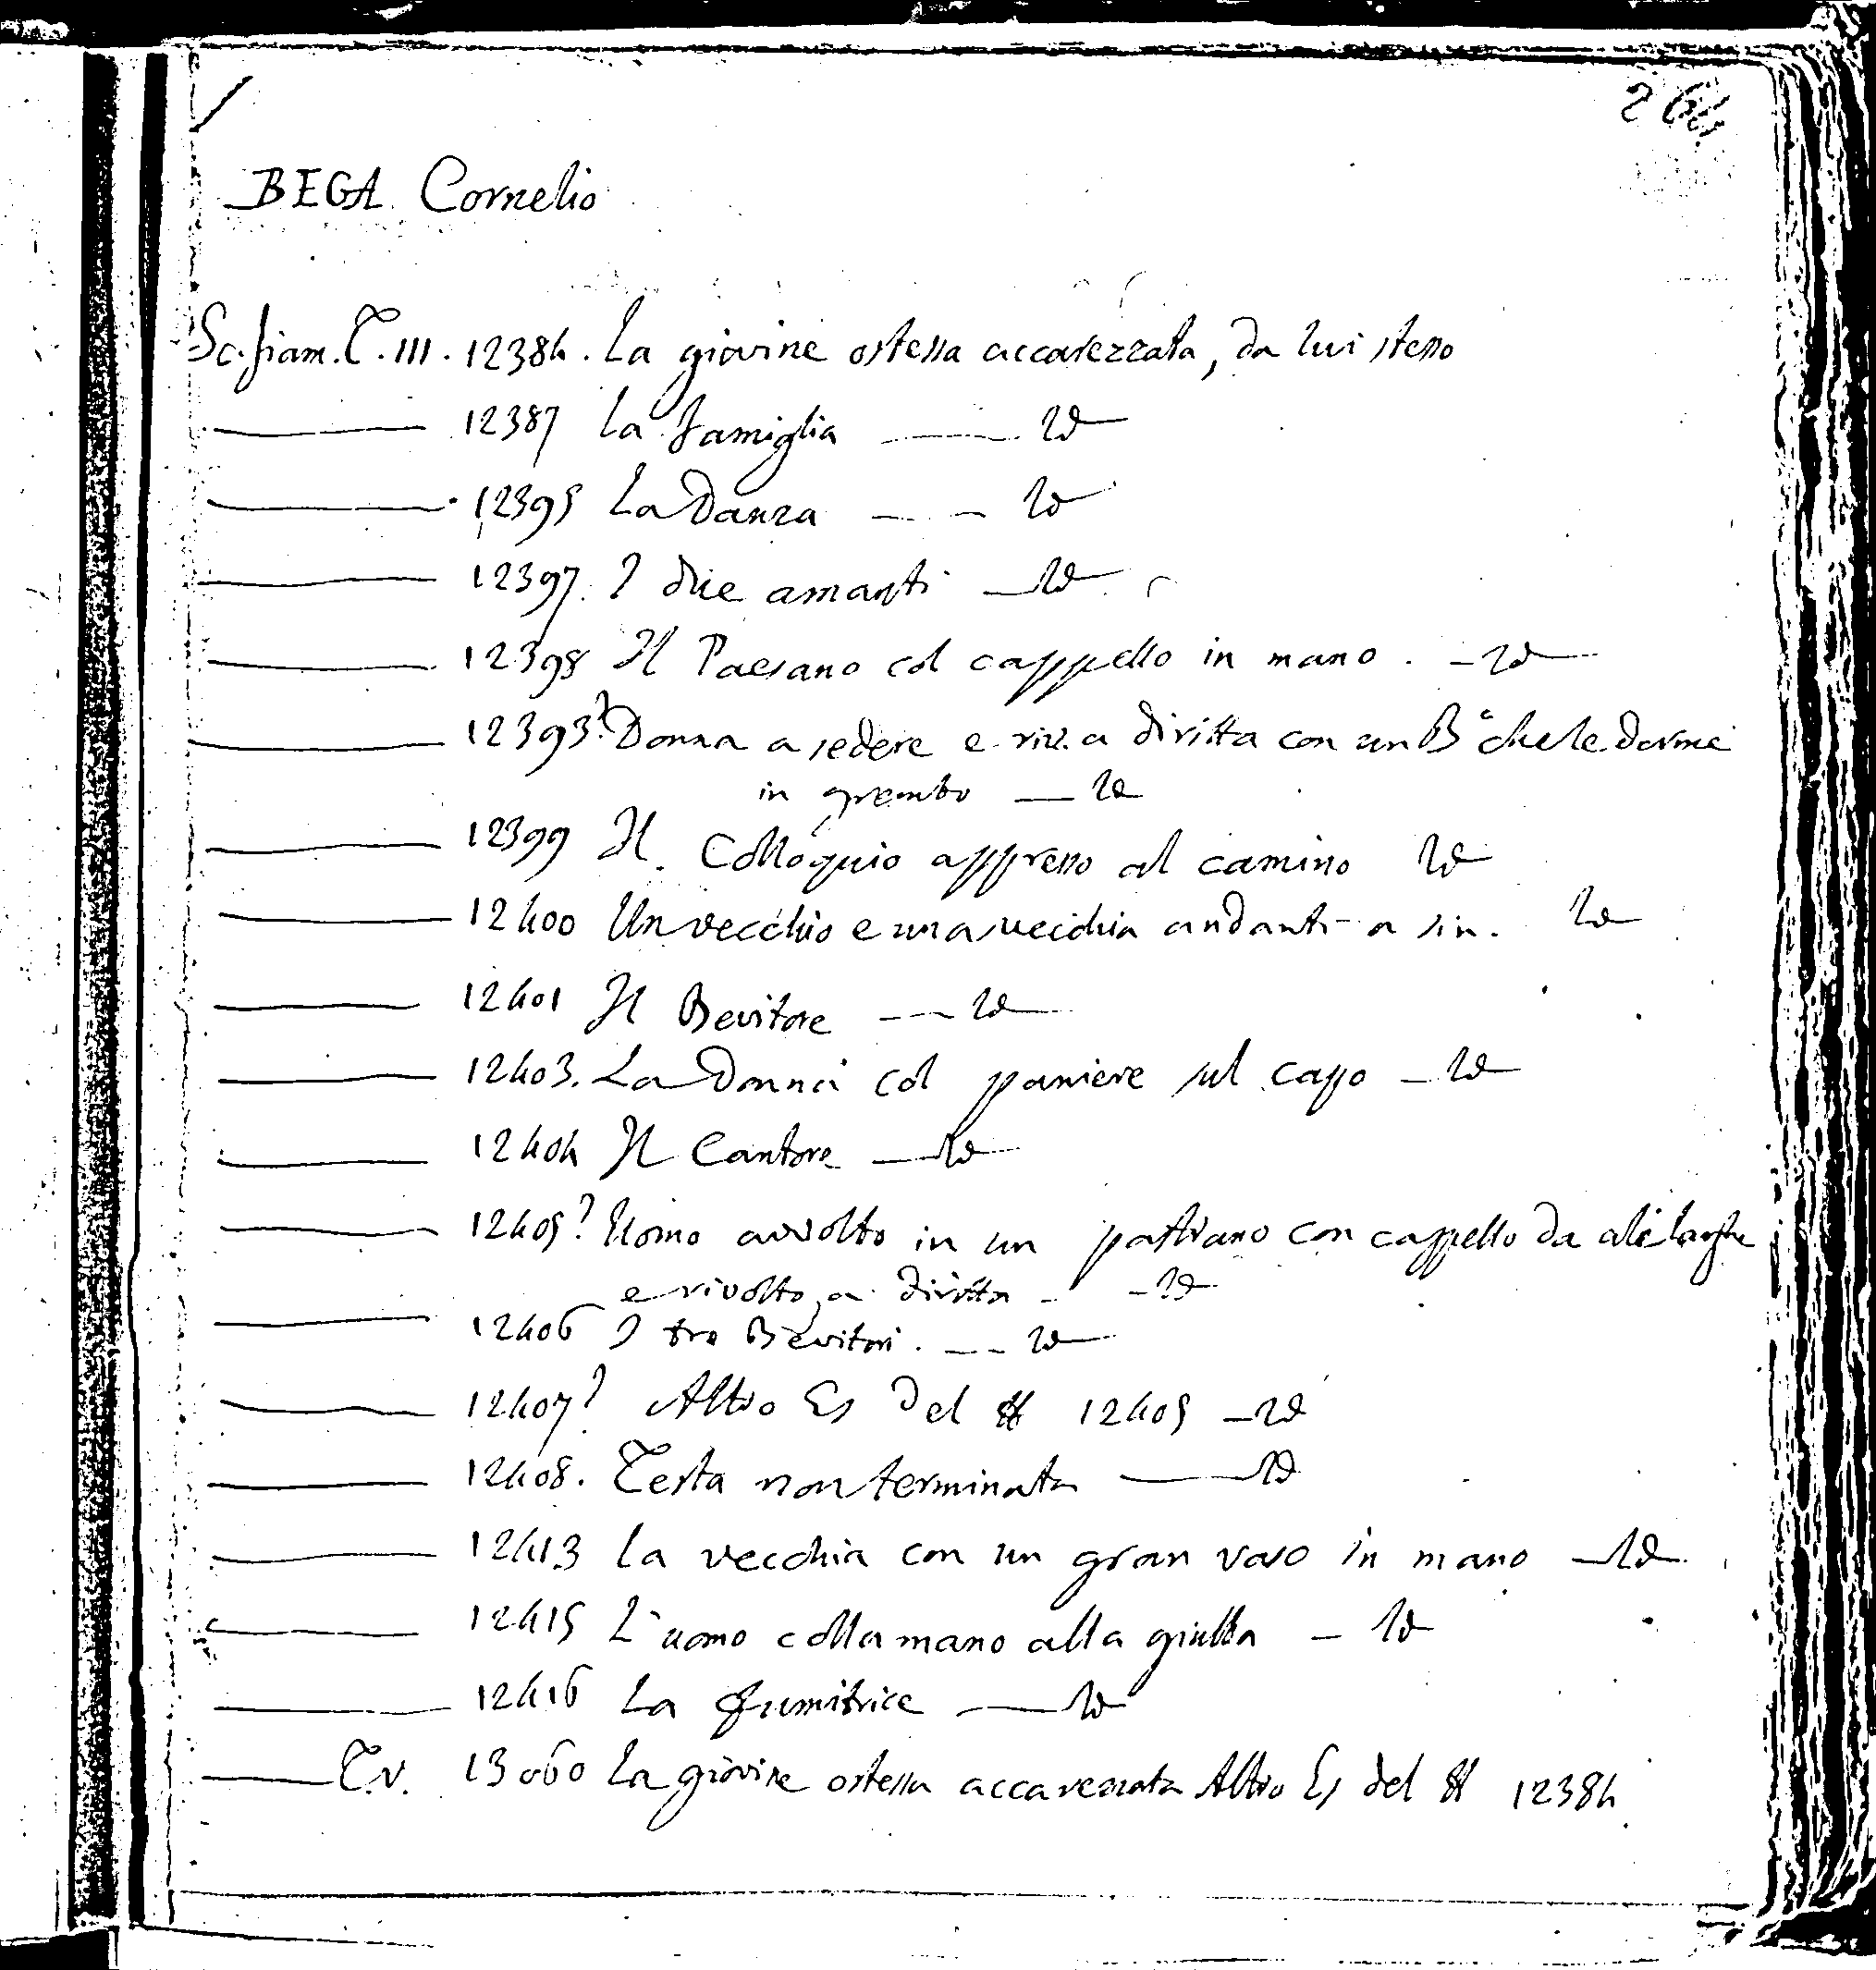 264
BEGA Cornelio
Sc. fiam. T. III. 12384. La giovine ostessa accarezzata, da lui stesso
12387 La famiglia —— Id
12395 La Danza — — Id
12397. I due amanti — Id
12398 Il Paesano col cappello in mano. — Id
12393? Donna a sedere e riv. a diritta con un Bº che le dorme
in grembo — Id
12399 Il Colloquio appresso al camino Id
12400 Un vecchio e una vecchia andanti a sin. Id
12401 Il Bevitore — — Id
12403. La Donna col paniere sul capo — Id
12404 Il Cantore — Id
12405? Uomo avvolto in un pastrano con cappello da ali larghe
e rivolto a diritta - — Id
12406 I tre Bevitori. — — Id
12407? Altro Es del # 12405 — Id
12408. Testa non terminata —— Id
12413 La vecchia con un gran vaso in mano — Id
12415 L'uomo colla mano alla giubba — Id
12416 La fumitrice —— Id
T. V. 13060 La giovine ostessa accarezzata Altro Es del # 12384